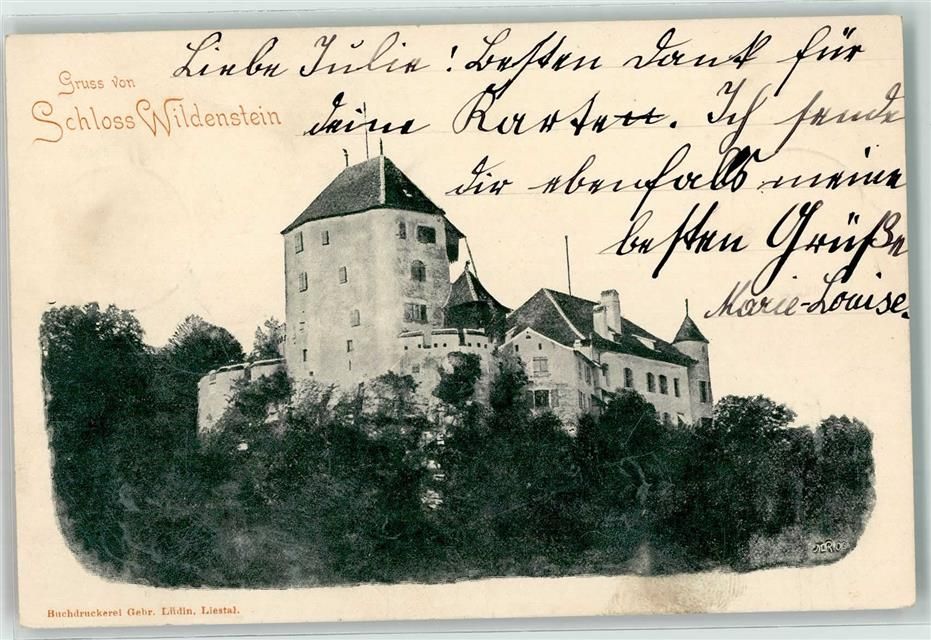 Gruss von
Schloss Wildenstein
Liebe Julie! Besten Dank für
deine Karten. Ich sende
dir ebenfalls meine
besten Grüße
Marie-Louise.
Buchdruckerei Gebr. Lüdin, Liestal.